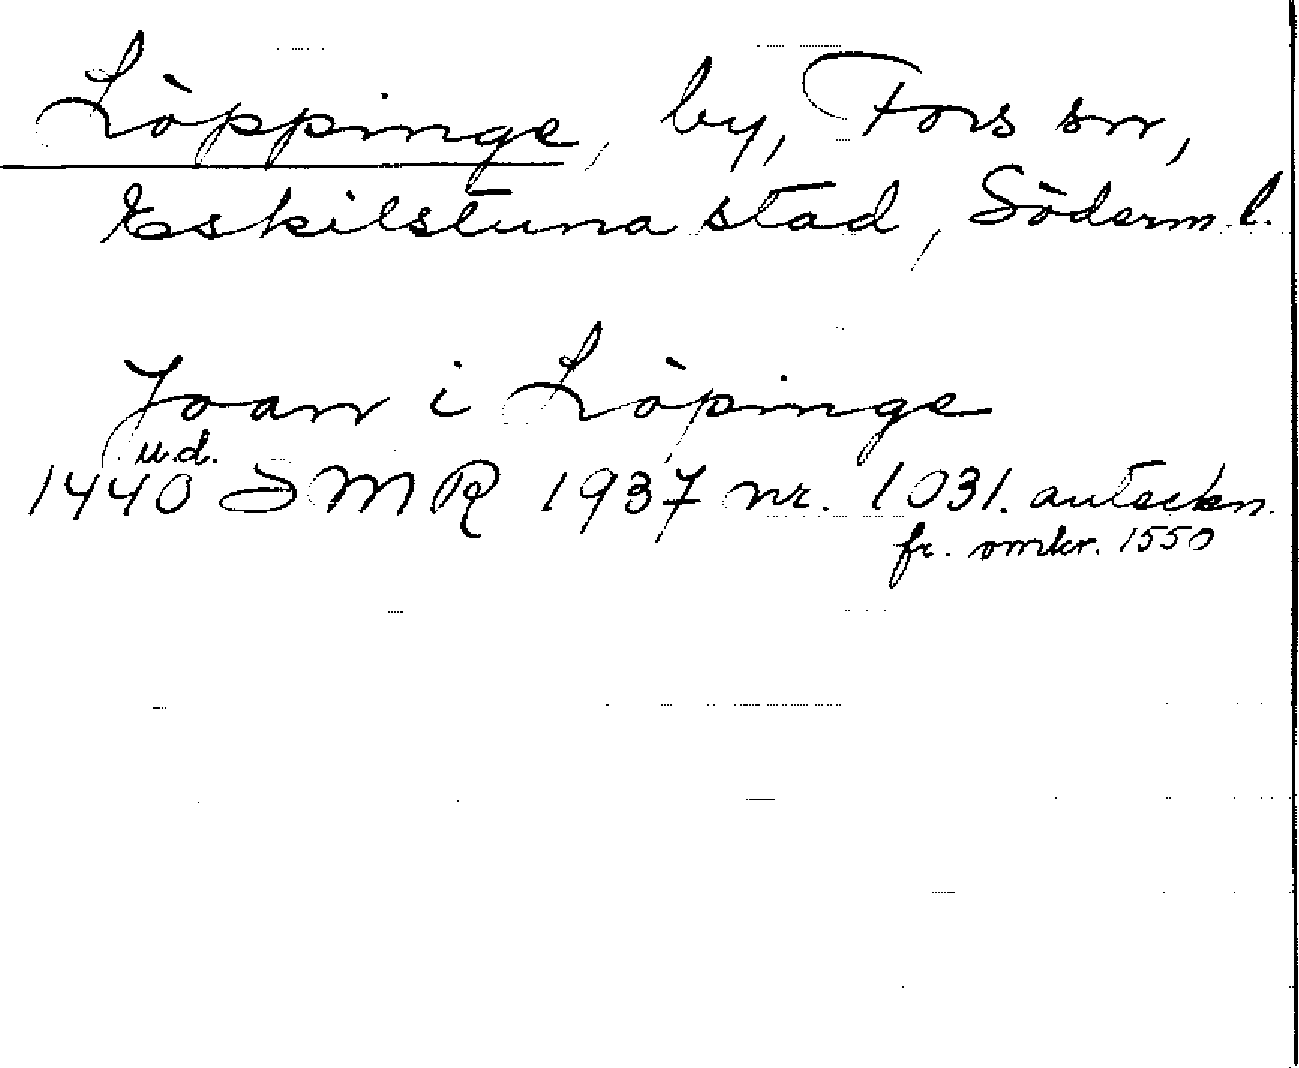 Löppinge, by, Fors sn,
Eskilstuna stad, Söderm. l.
Joan i Löpinge
u.d.
1440 SMR 1937 nr. 1031. anteckn.
fr. omkr. 1550